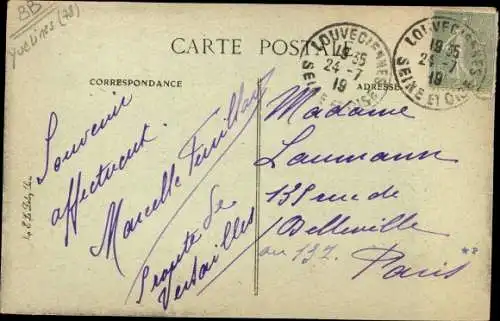 BB
Yvelines (78)
CARTE POSTALE
CORRESPONDANCE
ADRESSE
LOUVECIENNES
19 35
24 - 7
19
SEINE ET OISE
LOUVECIENNES
19 35
24 - 7
19
SEINE ET OISE
Souvenir
affectueux
Marcelle
Route de
Versailles
Madame
Laumann
135 rue de
Belleville
ou 137
Paris